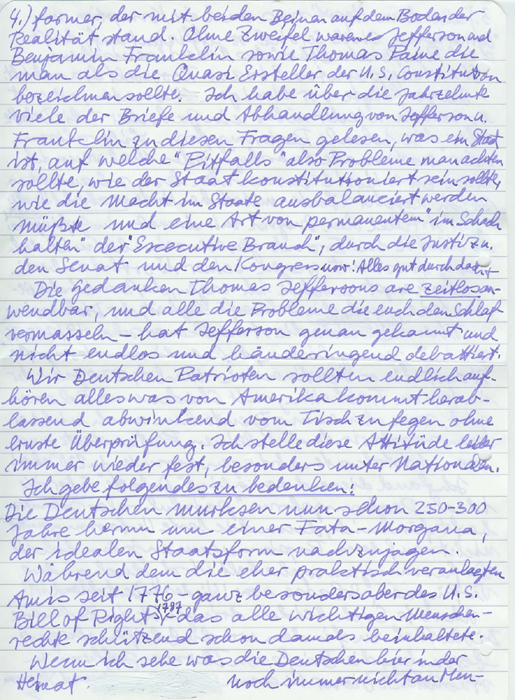 4.) former, der mit beiden Beinen auf dem Boden der
Realität stand. Ohne Zweifel waren es Jefferson und
Benjamin Franklin sowie Thomas Paine die
man als die Quasi Ersteller der U.S. Constitution
bezeichnen sollte. Ich habe über die Jahrzehnte
viele der Briefe und Abhandlung von Jefferson u.
Franklin zu diesen Fragen gelesen, was ein Staat
ist, auf welche "Pitfalls" also Probleme man achten
sollte, wie der Staat konstitutioniert sein sollte,
wie die Macht im Staate ausbalanciert werden
müßte und eine Art von permanentem "im Schach
halten" der "Executive Branch", durch die Justiz u.
den Senat und den Kongress vor! Alles gut durchdacht
Die Gedanken Thomas Jeffersons are zeitlos an-
wendbar, und alle die Probleme die euch den Schlaf
vermasseln – hat Jefferson genau gekannt und
nicht endlos und händeringend debattiert.
Wir Deutschen Patrioten sollten endlich auf-
hören alles was von Amerika kommt herab-
lassend abwinkend vom Tisch zu fegen ohne
ernste Überprüfung. Ich stelle diese Attitüde leider
immer wieder fest, besonders unter Nationalen.
Ich gebe folgendes zu bedenken:
Die Deutschen murksen nun schon 250-300
Jahre herum um einer Fata-Morgana,
der idealen Staatsform nachzujagen.
Während dem die eher praktisch veranlagten
Amis seit 1776 – ganz besonders aber des U.S.
Bill of Rights 1787 – das alle wichtigen Menschen-
rechte schützend schon damals beinhaltete.
Wenn ich sehe was die Deutschen hier in der
Heimat noch immer nicht an Men-